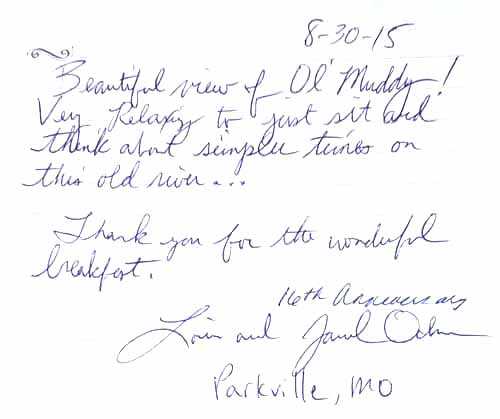 8-30-15
Beautiful view of Ol' Muddy!
Very Relaxing to just sit and
think about simpler times on
this old river...
Thank you for the wonderful
breakfast.
16th Anniversary
and
Parkville, MO